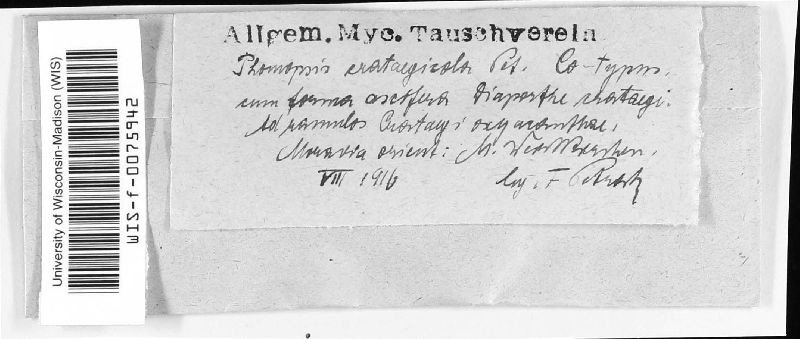 University of Wisconsin-Madison (WIS)
WIS-f-0075942
Allgem. Myc. Tauschverein
Phomopsis crataegicola Pet. Co-typus,
cum forma ascofera Diaporthe crataegi.
Ad ramulos Crataegi oxyacanthae,
Moravia orient: M.
VIII 1916 leg. F Petrak